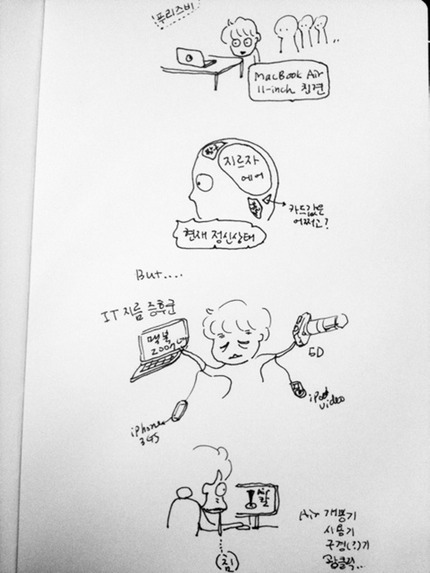 프리즈비
MacBook Air
11-inch 친견
지르자
에어
카드값은
어쩌고?
현재 정신상태
But....
IT 지름 증후군
맥북
2007
5D
iPod
video
iPhone
3GS
싸랑
Air 개봉기
사용기
구경(?)기
광클릭..
(침)